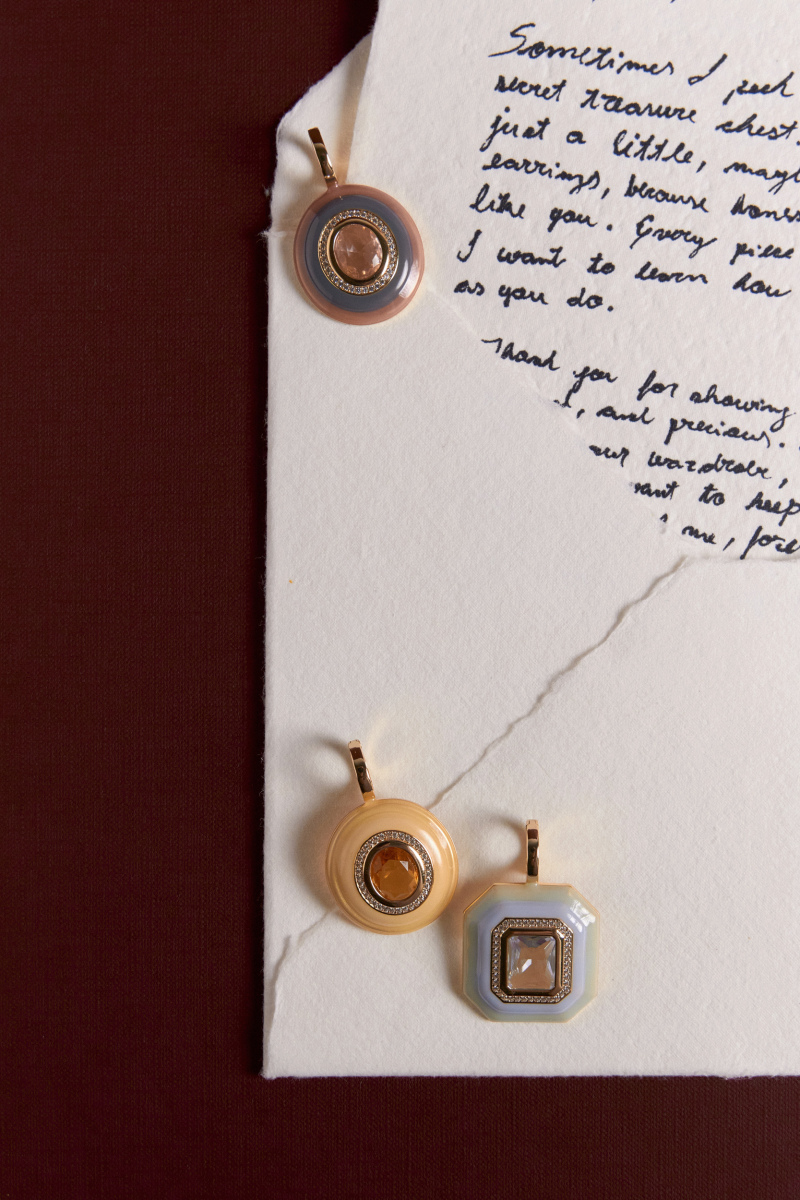 Sometimes I peek
secret treasure chest.
just a little, mayb
earrings, because hones
like you. Every piece
I want to learn how
as you do.
Thank you for showing
, and precious.
our wardrobe,
want to keep
me, fore